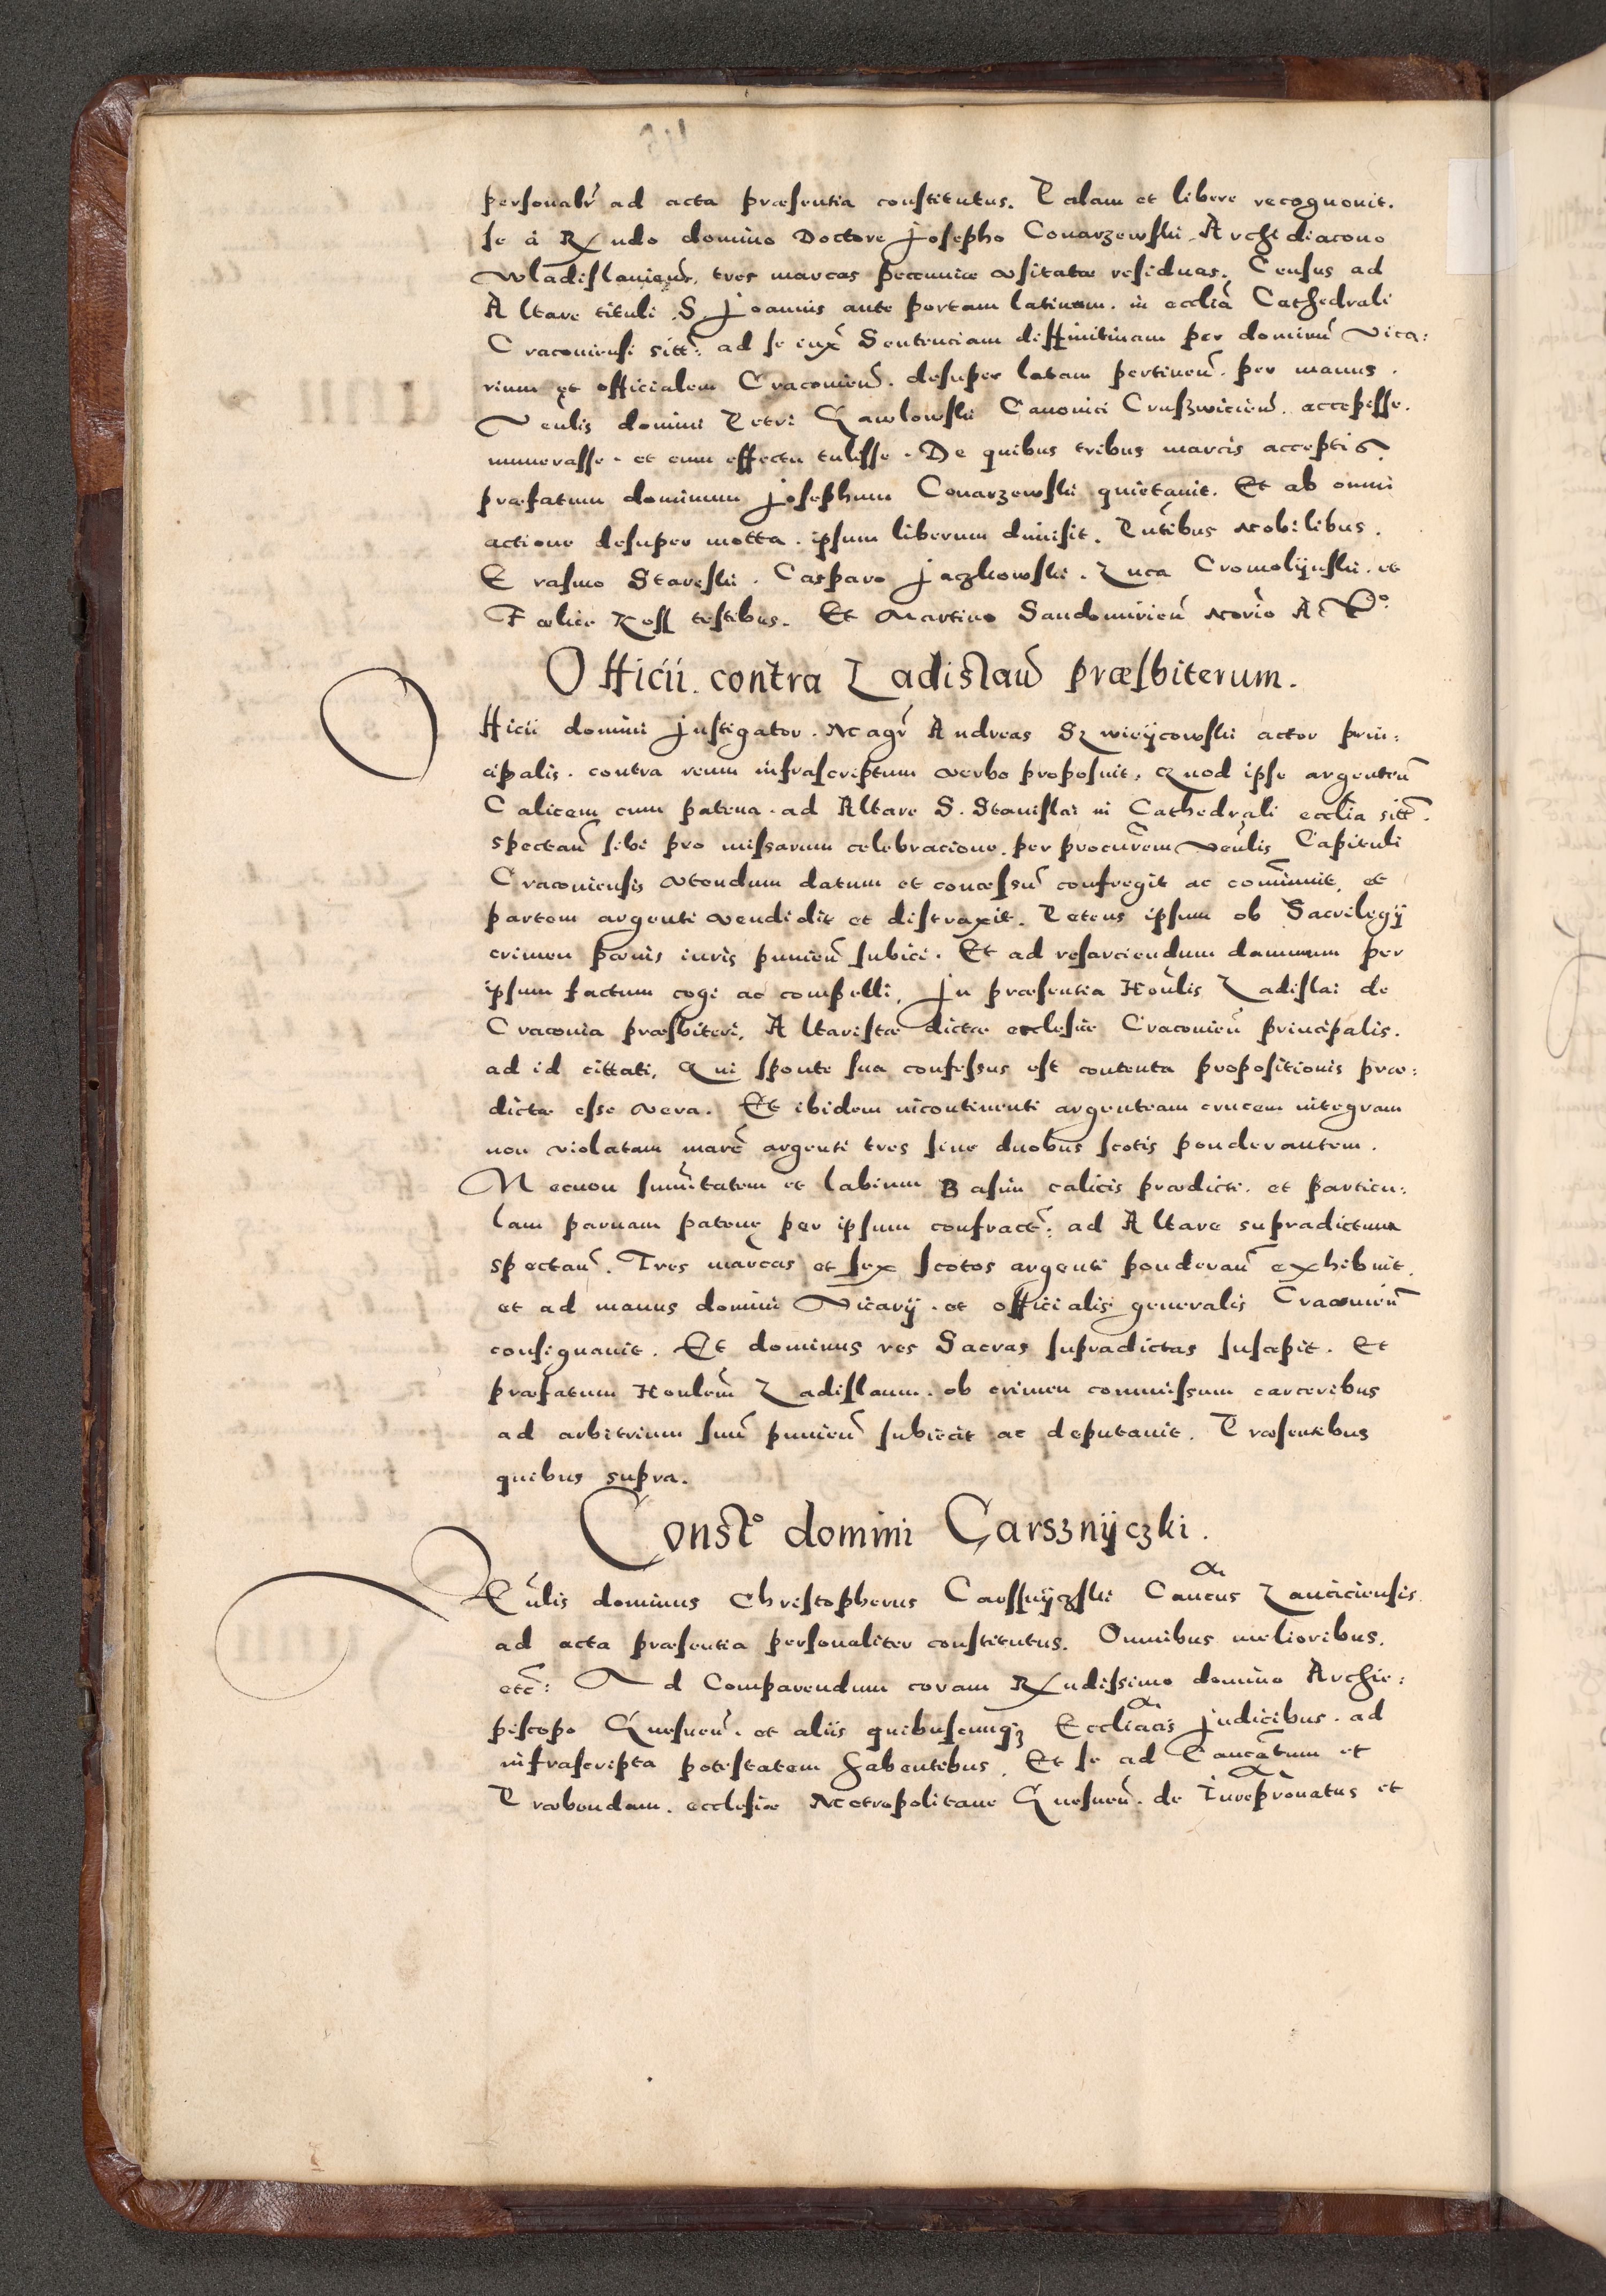 personalr̃ ad acta præsentia constitutus. Palam et libere recognouit.
se à Rndo domino Doctore Josepho Conarzewski Archidiacono
Wladislauien̄. tres marcas pecuniæ vsitatæ residuas. Census ad
Altare tituli S. Joannis ante portam latinam. in ecclīa Cathedrali
Cracouiensi sitt̄: ad se iux̃ Sentenciam diffinitiuam per dominū vica:
rium et officialem Cracouien̄. desuper latam pertinen̄. per manus.
Venlis domini Petri Gawlowski Canonici Cruszwicien̄. accepisse.
numerasse. et cum effectu tulisse. De quibus tribus marcis acceptis
præfatum dominum Josephum Conarzewski quietauit. Et ab omni
actione desuper motta. ipsum liberum dimisit. Pñtibus Nobilibus.
Erasmo Stareski. Casparo Jaczkowski. Luca Cromolÿnski. et
Fælice Koss testibus. Et Martino Sandomirien̄ Norīo
Officii. contra Ladislaū præsbiterum.
Officii domini Instigator. Magr̃ Andreas Szwieÿcowski actor prin:
cipalis. contra reum infrascriptum verbo proposuit, Quod ipse argenteū
Calicem cum patena. ad Altare S. Stanislai in Cathedrali ecclīa sitt̄.
spectan̄ sibi pro missarum celebracione. per procurēm venlis Capituli
Cracouiensis vtendum datum et concessū confregit ac comīnuit, et
partem argenti vendidit et distraxit. Petens ipsum ob Sacrilegÿ
crimen pœnis iuris punien̄ subici. Et ad resarciendum damnum per
ipsum factum cogi ac compelli, In præsentia Honlis Ladislai de
Cracouia præsbiteri, Altaristæ dictæ ecclesiæ Cracouien̄ principalis.
ad id cittati, Qui sponte sua confessus est contenta propositionis præ:
dictæ esse vera. Et ibidem incontinenti argenteam crucem integram
non violatam marc̄ argenti tres sine duobus scotis ponderantem.
Necnon sum̄itatem et labium Basim calicis prædicti. et particu:
lam paruam patenę per ipsum confract̄: ad Altare supradictum
spectan̄. Tres marcas et sex scotos argenti ponderan̄ exhibuit.
et ad manus domini Vicarÿ. et officialis generalis Cracouien̄
consignauit. Et dominus res Sacras supradictas suscepit. Et
præfatum Honlem̄ Ladislaum. ob crimen commissum carceribus
ad arbitrium suū punien̄ subiecit ac deputauit. Præsentibus
quibus supra.
Constō domini Carsznÿczki.
Venlis dominus Christopherus Carssnÿczski Cancus Lanciciensis
ad acta præsentia personaliter constitutus. Omnibus melioribus.
etc̄: Ad Comparendum coram Rndissimo domino Archie:
piscopo Gnesnen̄. et aliis quibuscunqȝ Eccliacis Judicibus. ad
infrascripta potestatem habentibus, Et se ad Cancātum et
Præbendam. ecclesiæ Metropolitane Gnesnen̄. de Iurepr̄onatus et